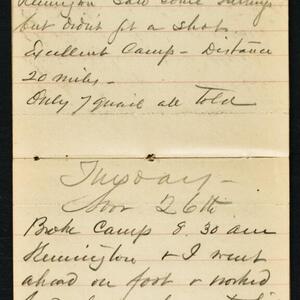 Remington saw some turkeys
but didn't get a shot.
Excellent Camp - Distance
20 miles -
Only 7 quail all told
Tuesday -
Nov 26th
Broke Camp 8.30 am
Remington & I went
ahead on foot & worked